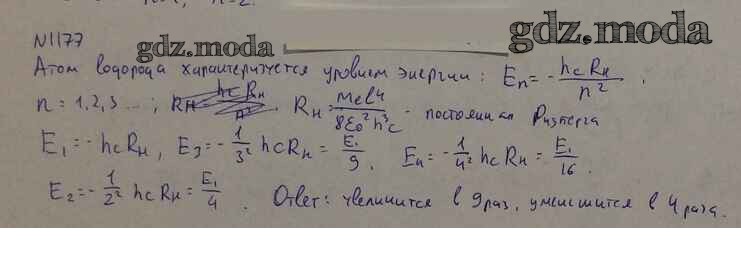 N1177
gdz.moda gdz.moda
Атом водорода характеризуется уровнем энергии: En = - hcRн/n² .
n = 1,2,3 ...; Rн = mee⁴/8ε₀²h³c - постоянная Ридберга
E₁ = - hcRн, E₃ = - 1/3² hcRн = E₁/9 . E₄ = - 1/4² hcRн = E₁/16 .
E₂ = - 1/2² hcRн = E₁/4 . Ответ: увеличится в 9 раз, уменьшится в 4 раза.